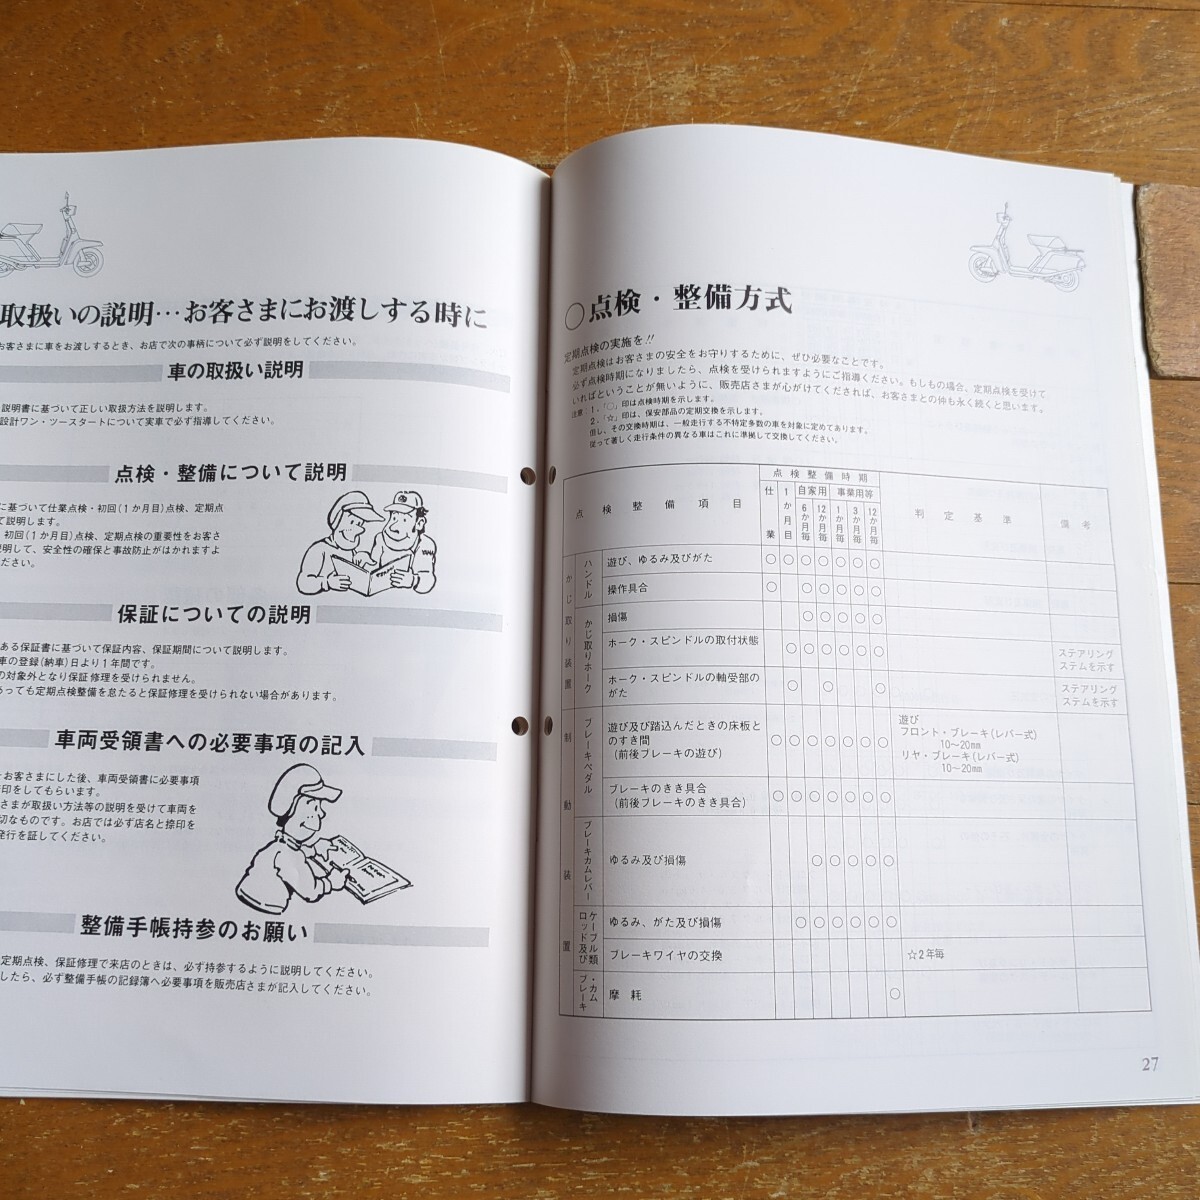 取扱いの説明…お客さまにお渡しする時に
お客さまに車をお渡しするとき、お店で次の事柄について必ず説明をしてください。
車の取扱い説明
説明書に基づいて正しい取扱方法を説明します。
設計ワン・ツースタートについて実車で必ず指導してください。
点検・整備について説明
に基づいて仕業点検・初回(1か月目)点検、定期点
て説明します。
初回(1か月目)点検、定期点検の重要性をお客さ
説明して、安全性の確保と事故防止がはかれますよ
ください。
YAMA
保証についての説明
ある保証書に基づいて保証内容、保証期間について説明します。
車の登録(納車)日より1年間です。
の対象外となり保証修理を受けられません。
あっても定期点検整備を怠たると保証修理を受けられない場合があります。
車両受領書への必要事項の記入
をお客さまにした後、車両受領書に必要事項
印をしてもらいます。
さまが取扱い方法等の説明を受けて車両を
切なものです。お店では必ず店名と捺印を
発行を証してください。
整備手帳持参のお願い
定期点検、保証修理で来店のときは、必ず持参するように説明してください。
したら、必ず整備手帳の記録簿へ必要事項を販売店さまが記入してください。
○点検・整備方式
定期点検の実施を!!
定期点検はお客さまの安全をお守りするために、ぜひ必要なことです。
必ず点検時期になりましたら、点検を受けられますようにご指導ください。もしもの場合、定期点検を受けて
いればということが無いように、販売店さまが心がけてくだされば、お客さまとの仲も永く続くと思います。
注意 1.「○」印は点検時期を示します。
2.「☆」印は、保安部品の定期交換を示します。
但し、その交換時期は、一般走行する不特定多数の車を対象に定めてあります。
従って著しく走行条件の異なる車はこれに準拠して交換してください。
点検整備項目 点検整備時期 判定基準 備考
仕業 1か月目 自家用 事業用等
6か月毎 12か月毎 1か月毎 3か月毎 12か月毎
かじ取り装置 ハンドル 遊び、ゆるみ及びがた ○ ○ ○ ○ ○ ○ ○
操作具合 ○ ○ ○ ○ ○ ○
かじ取りホーク 損傷 ○ ○ ○ ○ ○
ホーク・スピンドルの取付状態 ○ ○ ○ ○ ○ ○ ステアリング
ステムを示す
ホーク・スピンドルの軸受部の
がた ○ ○ ○ ステアリング
ステムを示す
制動装置 ブレーキペダル 遊び及び踏込んだときの床板と
のすき間
(前後ブレーキの遊び) ○ ○ ○ ○ ○ ○ ○
遊び
フロント・ブレーキ(レバー式)
10〜20mm
リヤ・ブレーキ(レバー式)
10〜20mm
ブレーキのきき具合
(前後ブレーキのきき具合) ○ ○ ○ ○ ○ ○ ○
ブレーキカムレバー ゆるみ及び損傷 ○ ○ ○ ○ ○
ロッド及びケーブル類 ゆるみ、がた及び損傷 ○ ○ ○ ○ ○ ○
ブレーキワイヤの交換 ☆2年毎
ブレーキ・カム 摩耗 ○
27